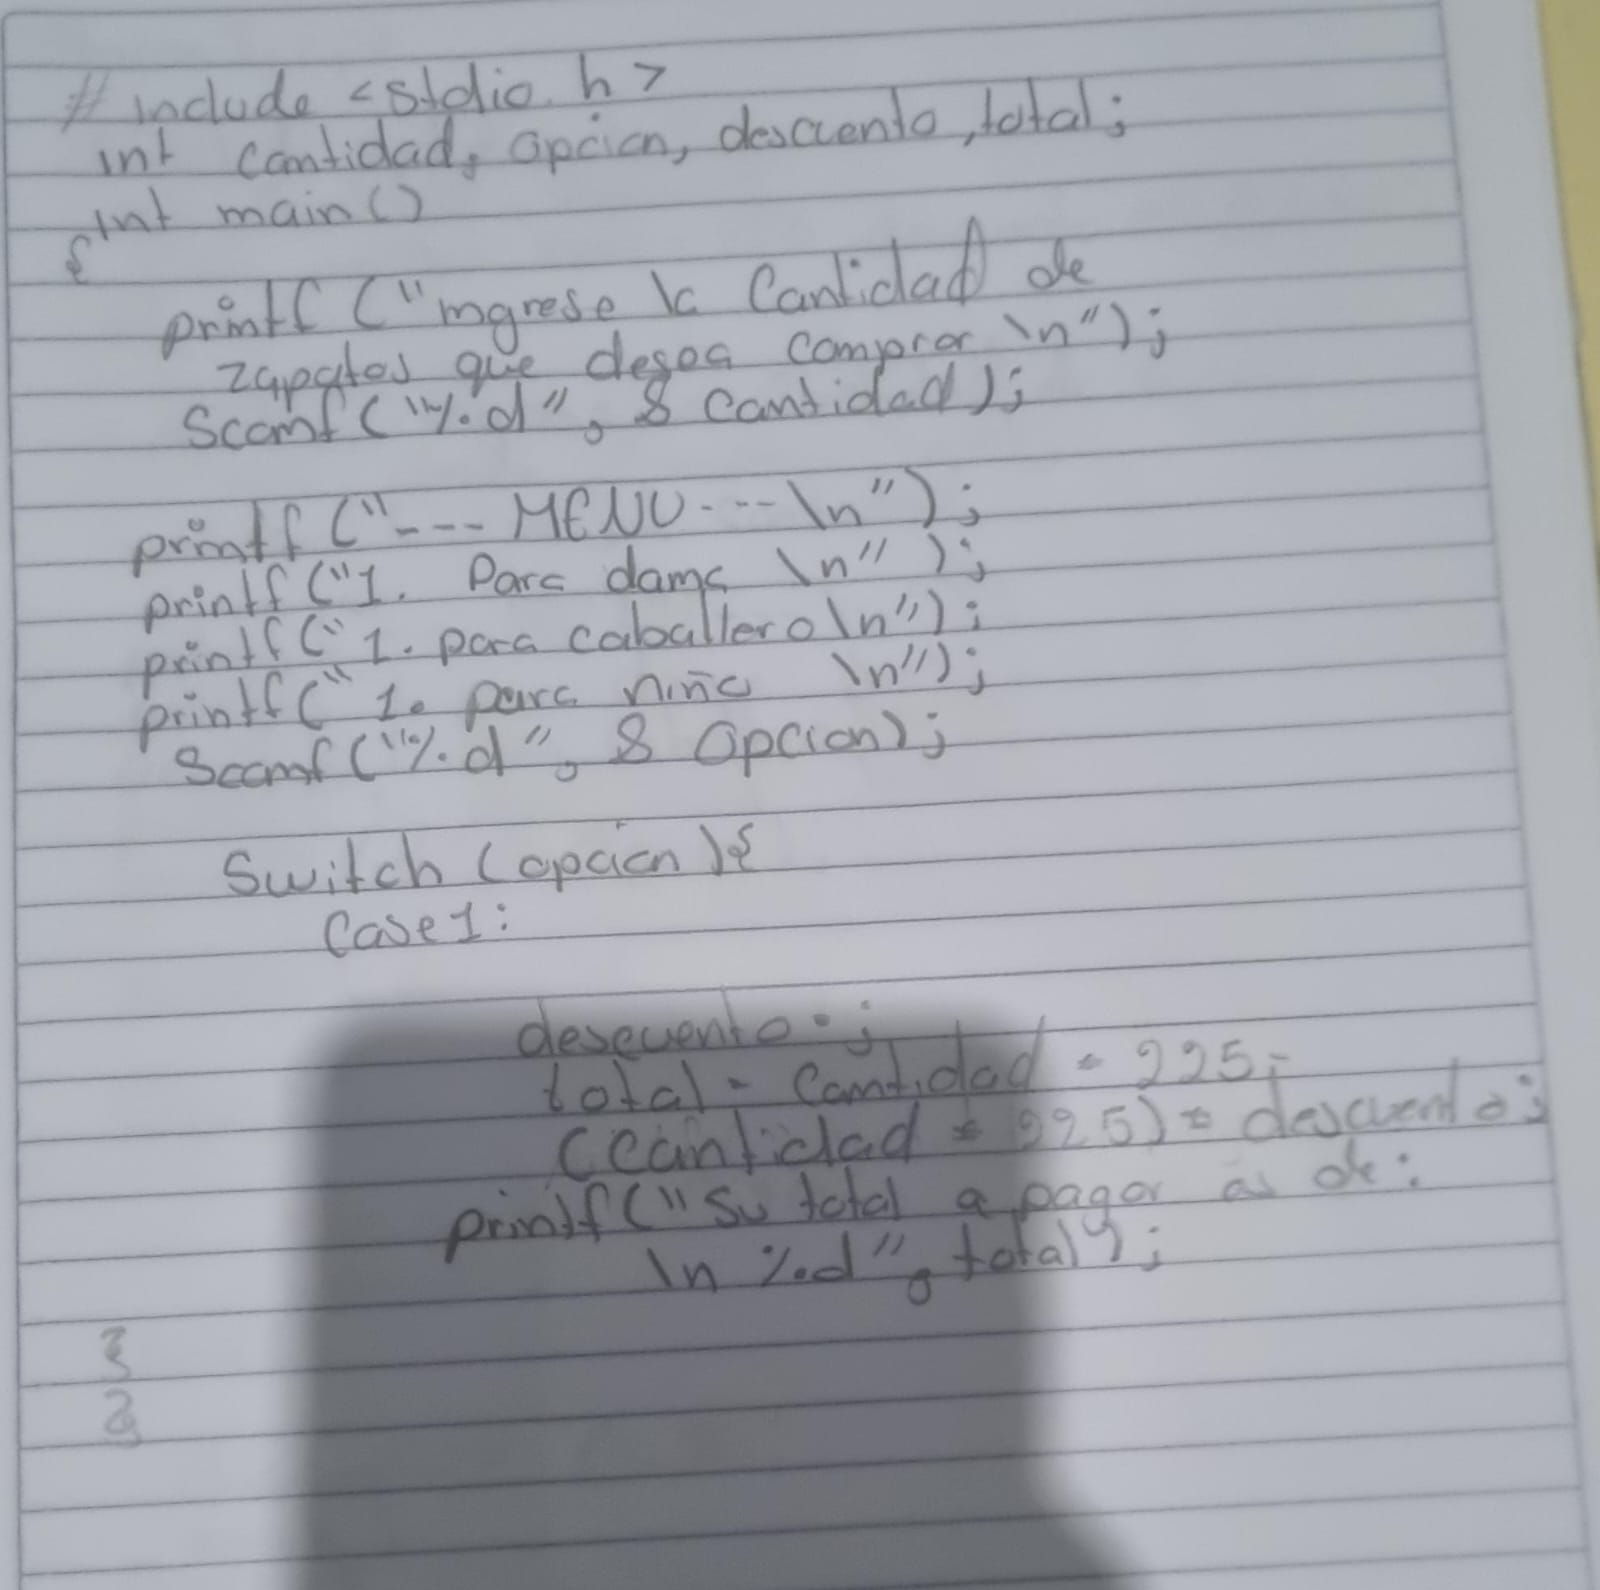 # include <stdio.h>
int cantidad, opcion, descuento, total;
int main()
{
printf ("ingrese la Cantidad de
zapatos que desea comprar \n");
Scanf ("%d", & cantidad);
printf ("--- MENU --- \n");
printf ("1. Para dama \n");
printf (" 1. para caballero \n");
printf (" 1. para niño \n");
Scanf ("%d", & Opcion);
Switch (opcion) {
Case 1:
descuento = ;
total = Cantidad * 225 -
(Cantidad * 225) * descuento;
printf ("Su total a pagar es de:
\n %d", total);
}
}